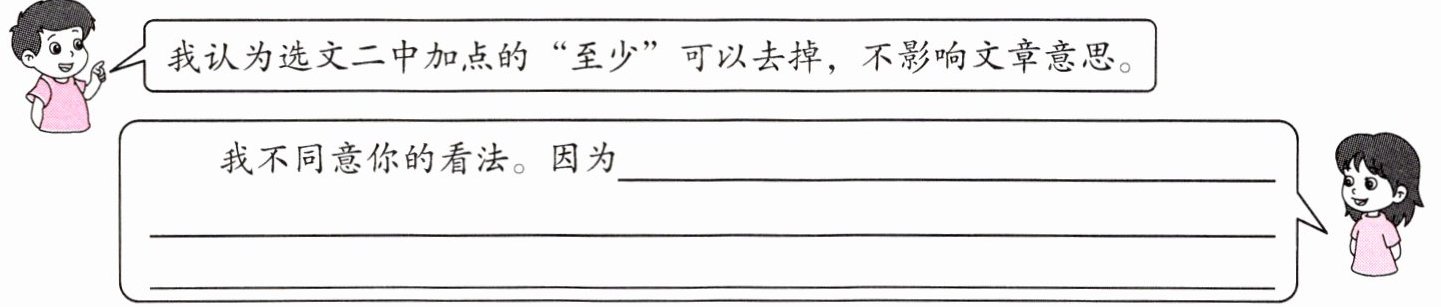 我认为选文二中加点的“至少”可以去掉，不影响文章意思。
我不同意你的看法。因为